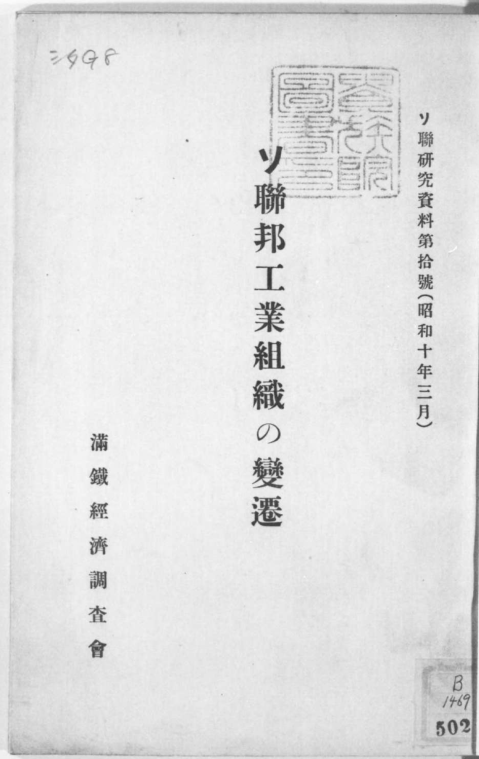 ソ聯研究資料第拾號(昭和十年三月)
ソ聯邦工業組織の變遷
滿鐵經濟調査會
B
1469
502